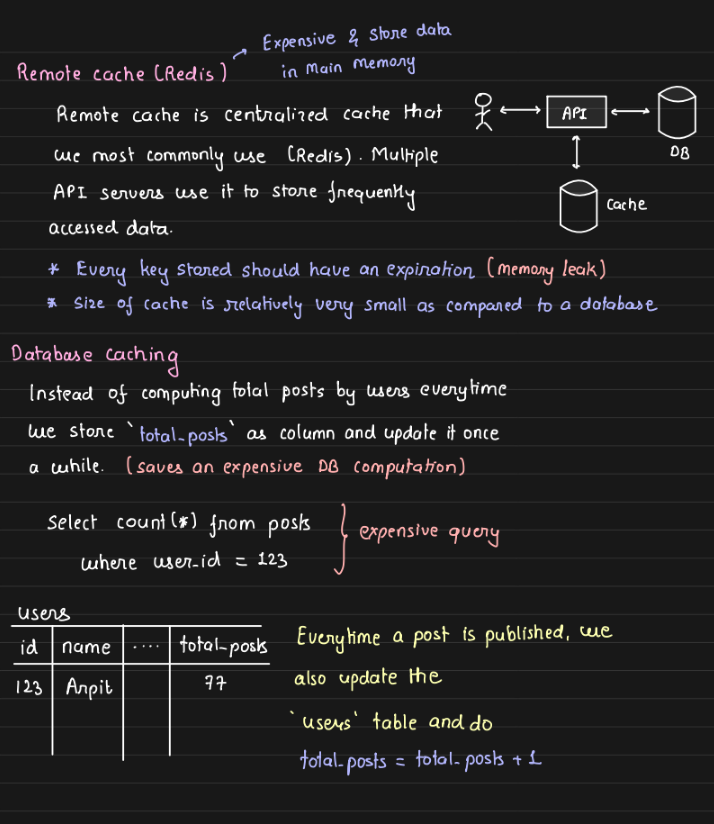 Expensive & store data
in main memory
Remote cache (Redis)
Remote cache is centralized cache that
we most commonly use (Redis). Multiple
API servers use it to store frequently
accessed data.
API
DB
Cache
* Every key stored should have an expiration (memory leak)
* Size of cache is relatively very small as compared to a database
Database Caching
Instead of computing total posts by users everytime
we store `total_posts` as column and update it once
a while. (saves an expensive DB computation)
Select count(*) from posts
where user_id = 123
expensive query
users
id name .... total_posts
123 Arpit 77
Everytime a post is published, we
also update the
`users` table and do
total_posts = total_posts + 1